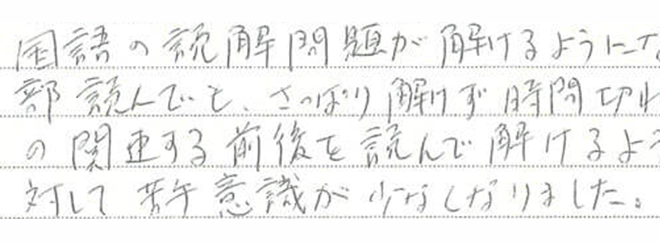 国語の読解問題が解けるようにな
部読んでも、さっぱり解けず時間切れ
の関連する前後を読んで解けるよう
対して苦手意識が少なくなりました。